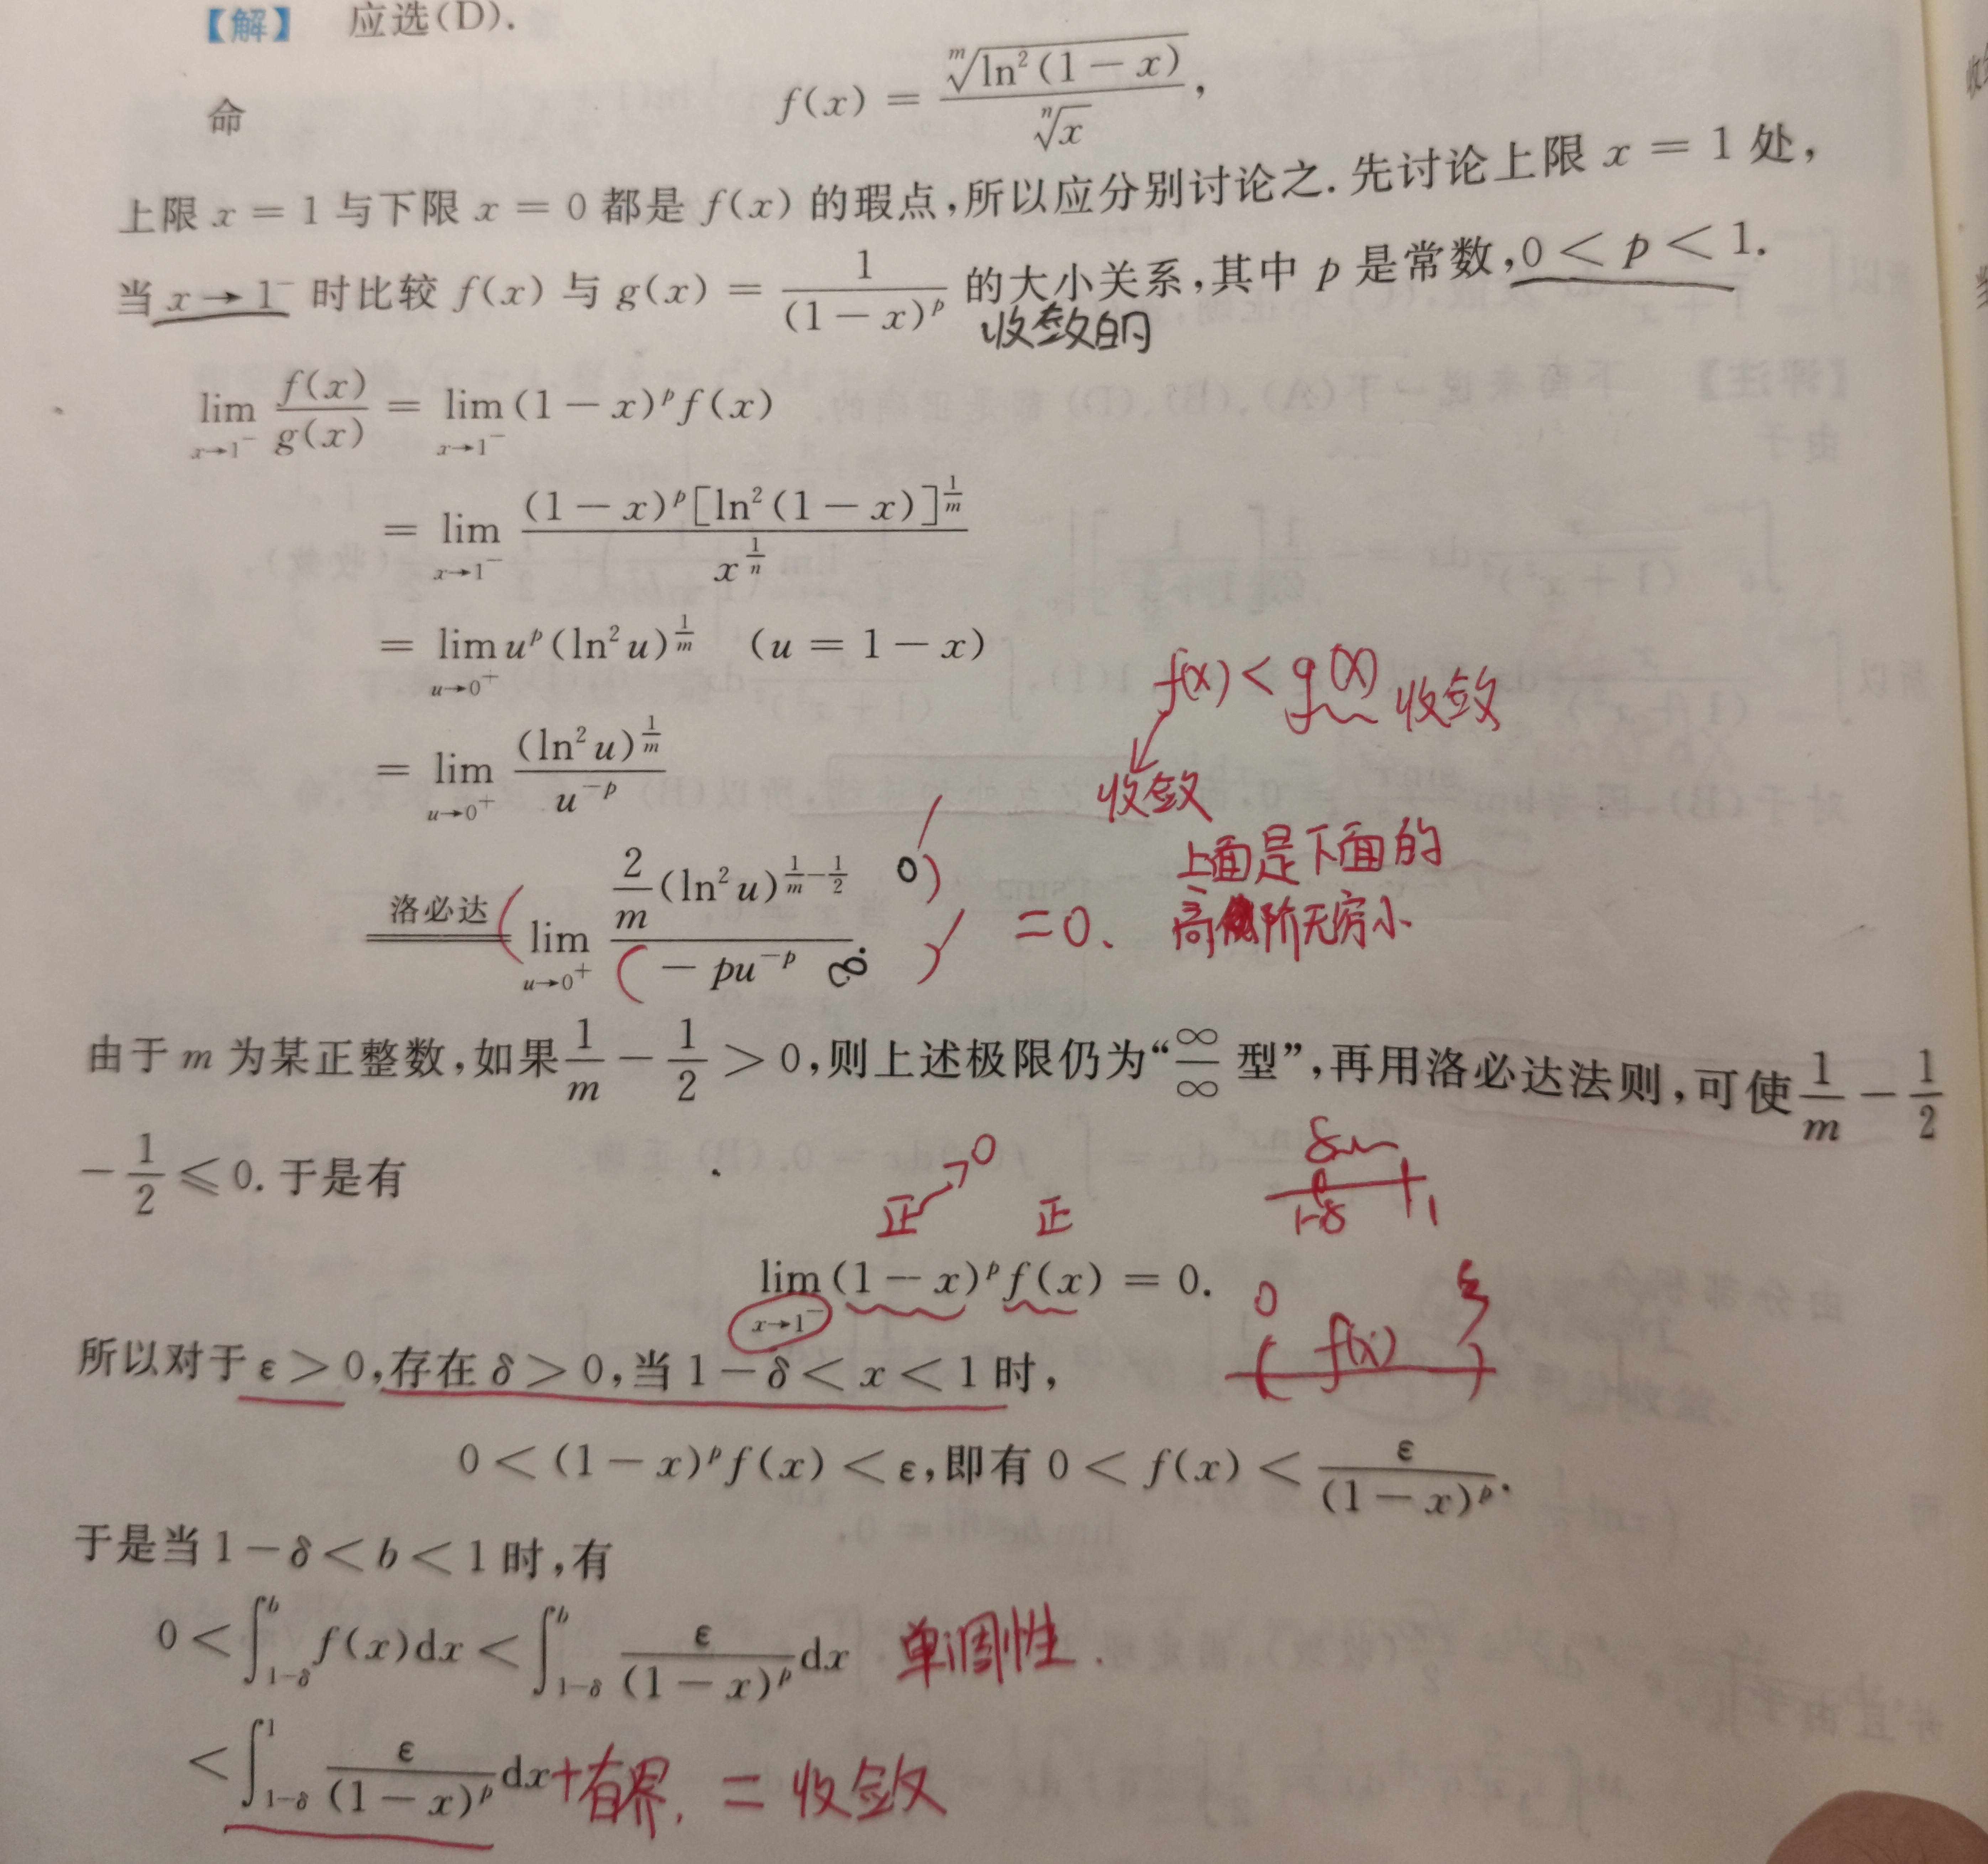 【解】 应选(D).
命 f(x) = \frac{\sqrt[m]{\ln^2(1-x)}}{\sqrt[n]{x}},
上限 x = 1 与下限 x = 0 都是 f(x) 的瑕点,所以应分别讨论之. 先讨论上限 x = 1 处,
当 x→1⁻ 时比较 f(x) 与 g(x) = \frac{1}{(1-x)^p} 的大小关系,其中 p 是常数,0 < p < 1.
收敛的
\lim_{x→1⁻} \frac{f(x)}{g(x)} = \lim_{x→1⁻} (1-x)^p f(x)
= \lim_{x→1⁻} \frac{(1-x)^p [\ln^2(1-x)]^{\frac{1}{m}}}{x^{\frac{1}{n}}}
= \lim_{u→0⁺} u^p (\ln^2 u)^{\frac{1}{m}} (u = 1-x)
f(x) < g(x) 收敛
= \lim_{u→0⁺} \frac{(\ln^2 u)^{\frac{1}{m}}}{u^{-p}}
收敛
洛必达 \lim_{u→0⁺} \frac{\frac{2}{m}(\ln^2 u)^{\frac{1}{m}-\frac{1}{2}}}{-pu^{-p}} 0 ∞ =0.
上面是下面的
高阶无穷小
由于 m 为某正整数,如果 \frac{1}{m} - \frac{1}{2} > 0,则上述极限仍为“\frac{∞}{∞} 型”,再用洛必达法则,可使 \frac{1}{m} - \frac{1}{2}
- \frac{1}{2} ≤ 0. 于是有
正 → 0 正
δ
1-δ 1
\lim_{x→1⁻} (1-x)^p f(x) = 0.
0 f(x) ξ
所以对于 ε > 0,存在 δ > 0,当 1-δ < x < 1 时,
0 < (1-x)^p f(x) < ε,即有 0 < f(x) < \frac{ε}{(1-x)^p}.
于是当 1-δ < b < 1 时,有
0 < \int_{1-δ}^{b} f(x)dx < \int_{1-δ}^{b} \frac{ε}{(1-x)^p} dx 单调性.
< \int_{1-δ}^{1} \frac{ε}{(1-x)^p} dx +有界. = 收敛